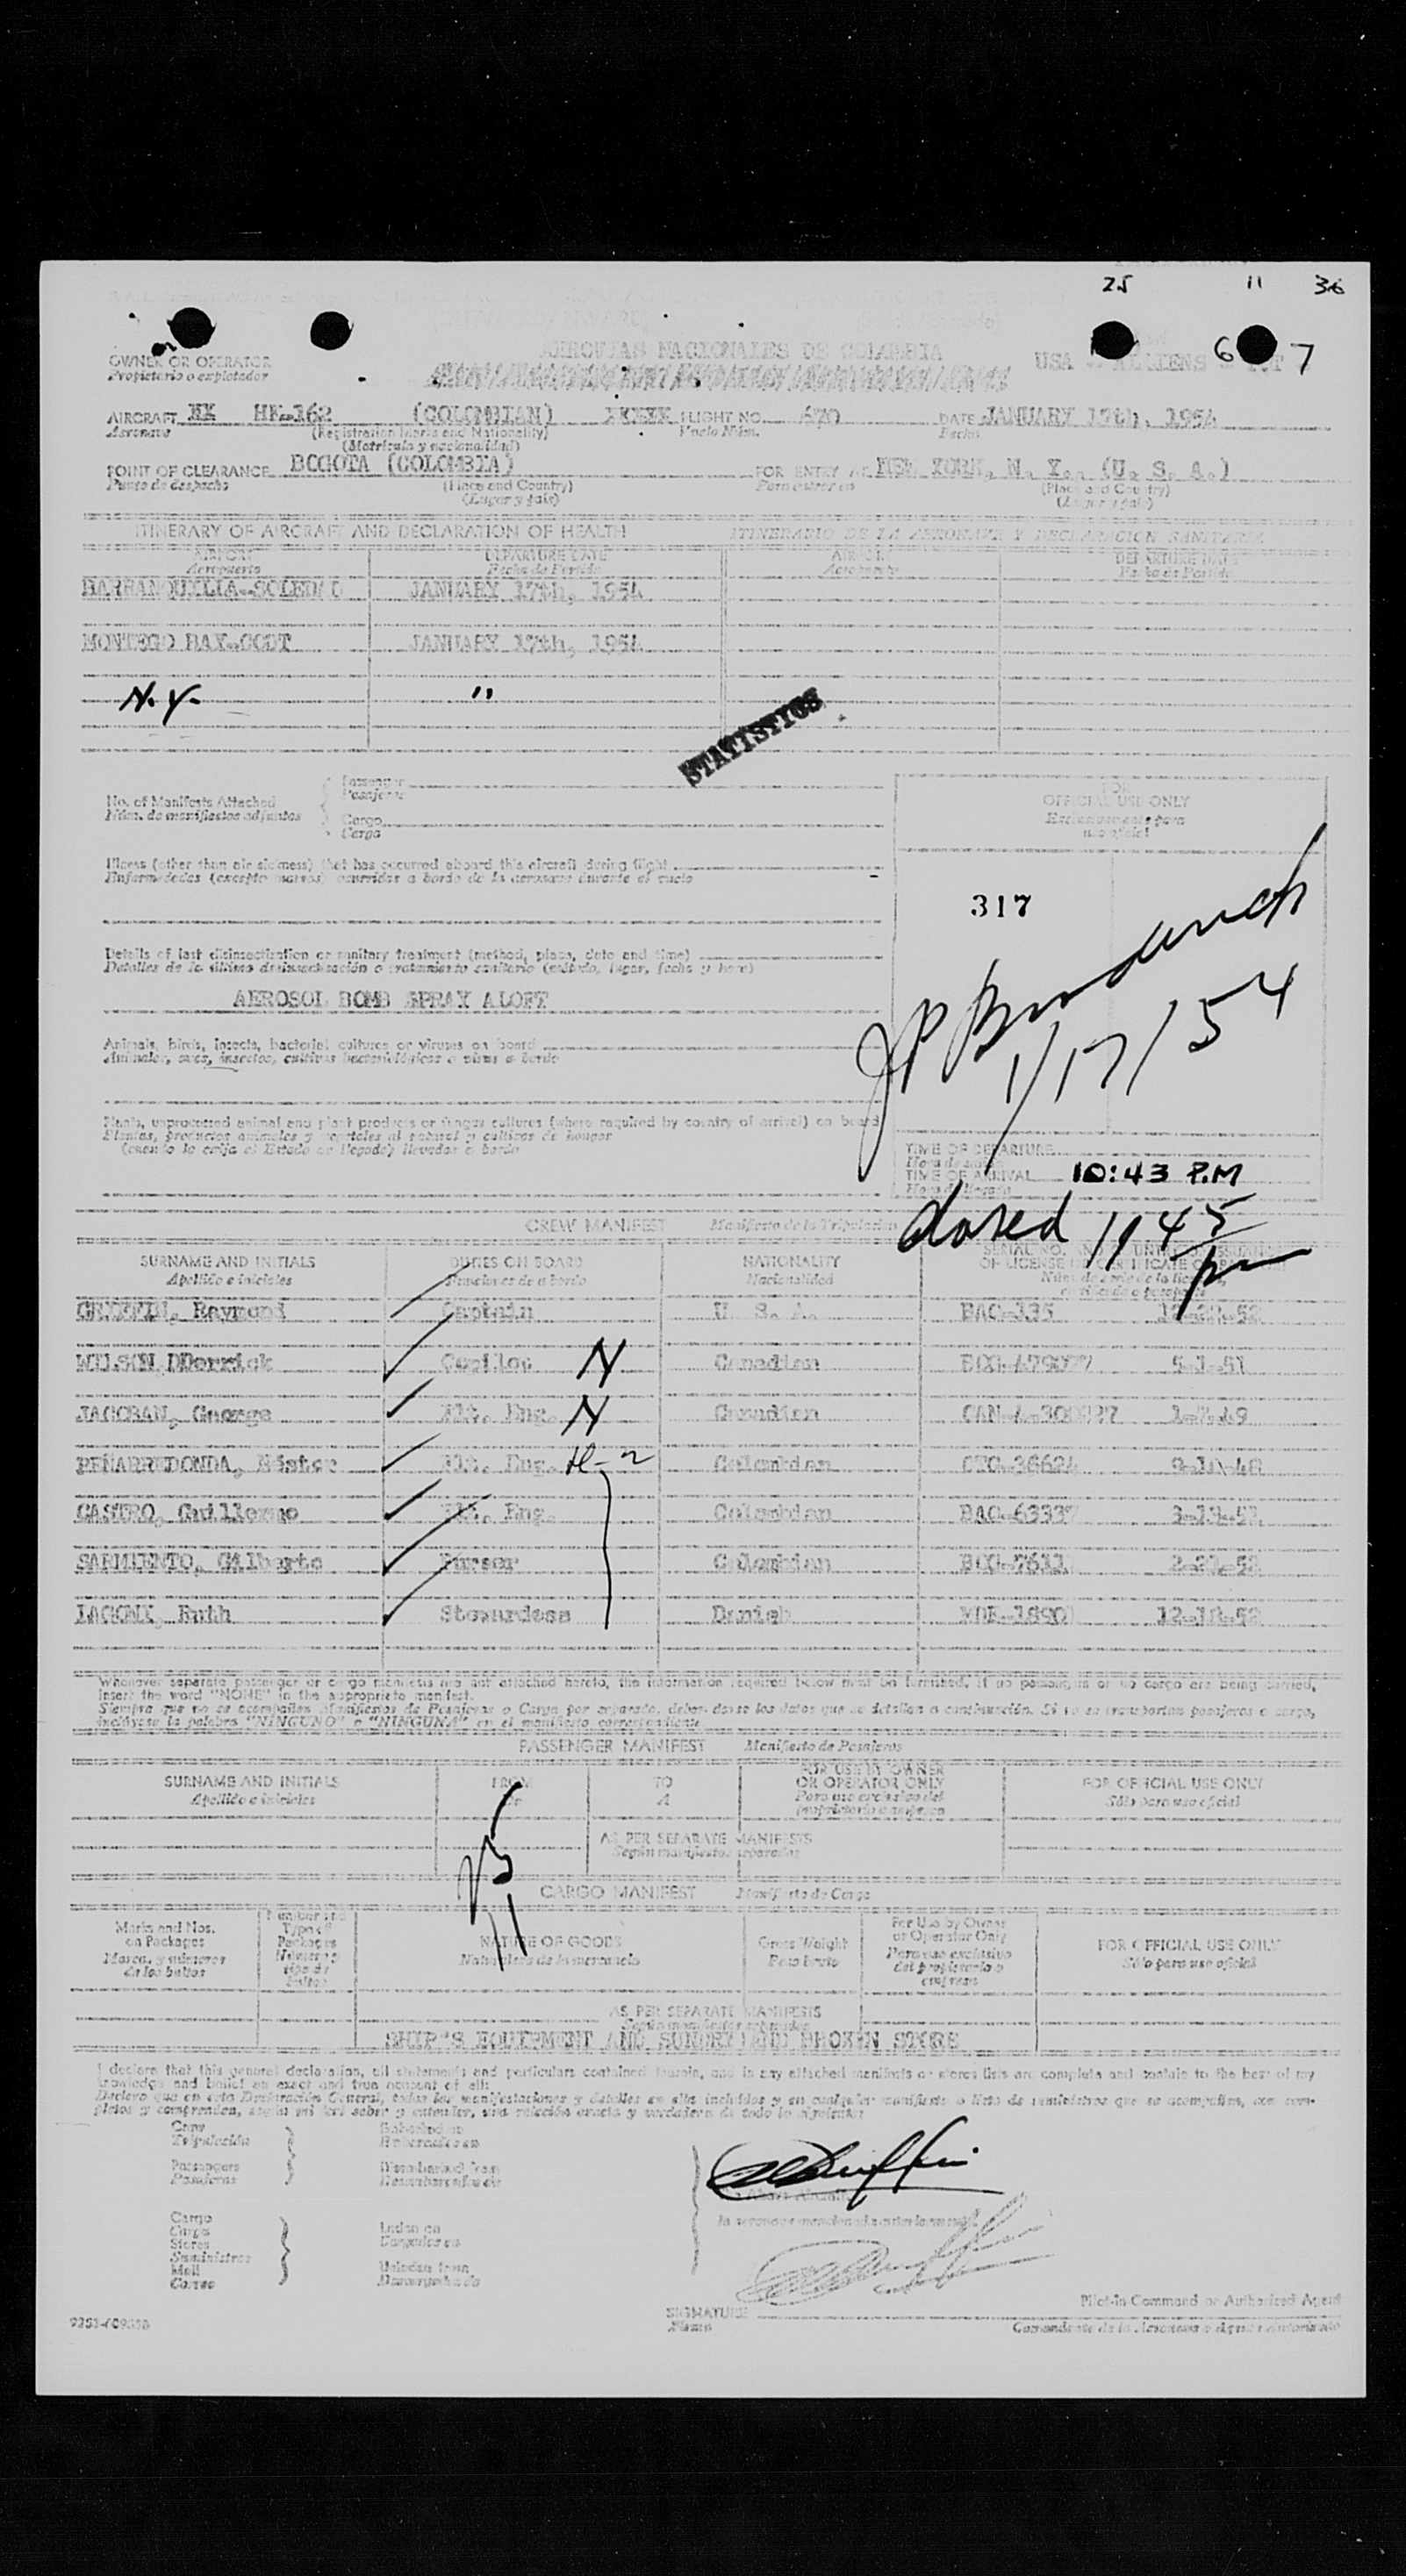 25 11 36
OWNER OR OPERATOR
Propietario o explotador
AEROVIAS NACIONALES DE COLOMBIA
USA ALIENS
6 7
AIRCRAFT HK-162 (COLOMBIAN) FLIGHT NO. 670 DATE JANUARY 17th, 1954
Aeronave (Registration Marks and Nationality) Vuelo Núm. Fecha
(Matrícula y nacionalidad)
POINT OF CLEARANCE BOGOTA (COLOMBIA) FOR ENTRY AT NEW YORK, N. Y., (U. S. A.)
Punto de despacho (Place and Country) Para entrar en (Place and Country)
(Lugar y país) (Lugar y país)
ITINERARY OF AIRCRAFT AND DECLARATION OF HEALTH ITINERARIO DE LA AERONAVE Y DECLARACION SANITARIA
AIRPORT DEPARTURE DATE AIRPORT DEPARTURE DATE
Aeropuerto Fecha de Partida Aeropuerto Fecha de Partida
BARRANQUILLA-SOLEDAD JANUARY 17th, 1954
MONTEGO BAY-GOBT JANUARY 17th, 1954
N.Y. "
STATISTICS
No. of Manifests Attached Passenger
Núm. de manifiestos adjuntos Pasajeros
Cargo
Carga
FOR OFFICIAL USE ONLY
Exclusivamente para uso oficial
Illness (other than air sickness) that has occurred aboard this aircraft during flight
Enfermedades (excepto mareos) ocurridas a bordo de la aeronave durante el vuelo
317
Details of last disinsectization or sanitary treatment (method, place, date and time)
Detalles de la última desinsectización o tratamiento sanitario (método, lugar, fecha y hora)
AEROSOL BOMB SPRAY ALOFT
1/17/54
Animals, birds, insects, bacterial cultures or viruses on board
Animales, aves, insectos, cultivos bacteriológicos o virus a bordo
Plants, unprocessed animal and plant products or fungus cultures (where required by country of arrival) on board
Plantas, productos animales y vegetales al natural y cultivos de hongos
(cuando lo exija el Estado de llegada) llevados a bordo
TIME OF DEPARTURE
Hora de salida
TIME OF ARRIVAL 10:43 P.M
Hora de llegada
closed 1145 pm
CREW MANIFEST Manifiesto de la Tripulación
SURNAME AND INITIALS DUTIES ON BOARD NATIONALITY SERIAL NO.
Apellido e iniciales Funciones de a bordo Nacionalidad
Raymond Captain U. S. A. BAQ-135 52
WILSON Derrick Copilot N Canadian 5-1-51
George Flt. Eng. N Canadian 49
PEÑARREDONDA, Néstor Flt. Eng. Colombian 48
CASTRO, Guillermo Flt. Eng. Colombian BAQ-6333
SARMIENTO, Gilberto Purser Colombian
Ruth Stewardess Danish 12-18-52
Whenever separate passenger or cargo manifests are not attached hereto, the information required below must be furnished, if no passengers or no cargo are being carried,
insert the word "NONE" in the appropriate manifest.
Siempre que no se acompañen Manifiestos de Pasajeros o Carga por separado, deben darse los datos que se detallan a continuación. Si no se transportan pasajeros o carga,
inclúyase la palabra "NINGUNO" o "NINGUNA" en el manifiesto correspondiente
PASSENGER MANIFEST Manifiesto de Pasajeros
SURNAME AND INITIALS FROM TO FOR USE BY OWNER OR OPERATOR ONLY FOR OFFICIAL USE ONLY
Apellido e iniciales De A Para uso exclusivo del propietario o empresa Sólo para uso oficial
AS PER SEPARATE MANIFESTS
Según manifiestos separados
25
11
CARGO MANIFEST Manifiesto de Carga
Marks and Nos. on Packages NATURE OF GOODS Gross Weight For Use by Owner or Operator Only FOR OFFICIAL USE ONLY
Marcas y números de los bultos Naturaleza de la mercancía Peso bruto Para uso exclusivo del propietario o empresa Sólo para uso oficial
AS PER SEPARATE MANIFESTS
Según manifiestos separados
SHIP'S EQUIPMENT AND SUNDRY AND BROKEN STORE
I declare that this general declaration, all statements and particulars contained herein, and in any attached manifests or stores lists are complete and contain to the best of my
knowledge and belief an exact and true account of all:
Declaro que en esta Declaración General, todas las manifestaciones y detalles en ella incluidos y en cualquier manifiesto o lista de suministros que se acompañen, son com-
pletos y comprenden, según mi leal saber y entender, una relación exacta y verdadera de todo lo siguiente:
Crew
Tripulación
Embarked on
Embarcados en
Passengers
Pasajeros
Disembarked from
Desembarcados de
Cargo
Carga
Stores
Suministros
Mail
Correo
Laden on
Cargados en
Unladen from
Descargados de
la aeronave mencionada anteriormente
SIGNATURE
Firma
Pilot-in Command or Authorized Agent
Comandante de la Aeronave o Agente Autorizado